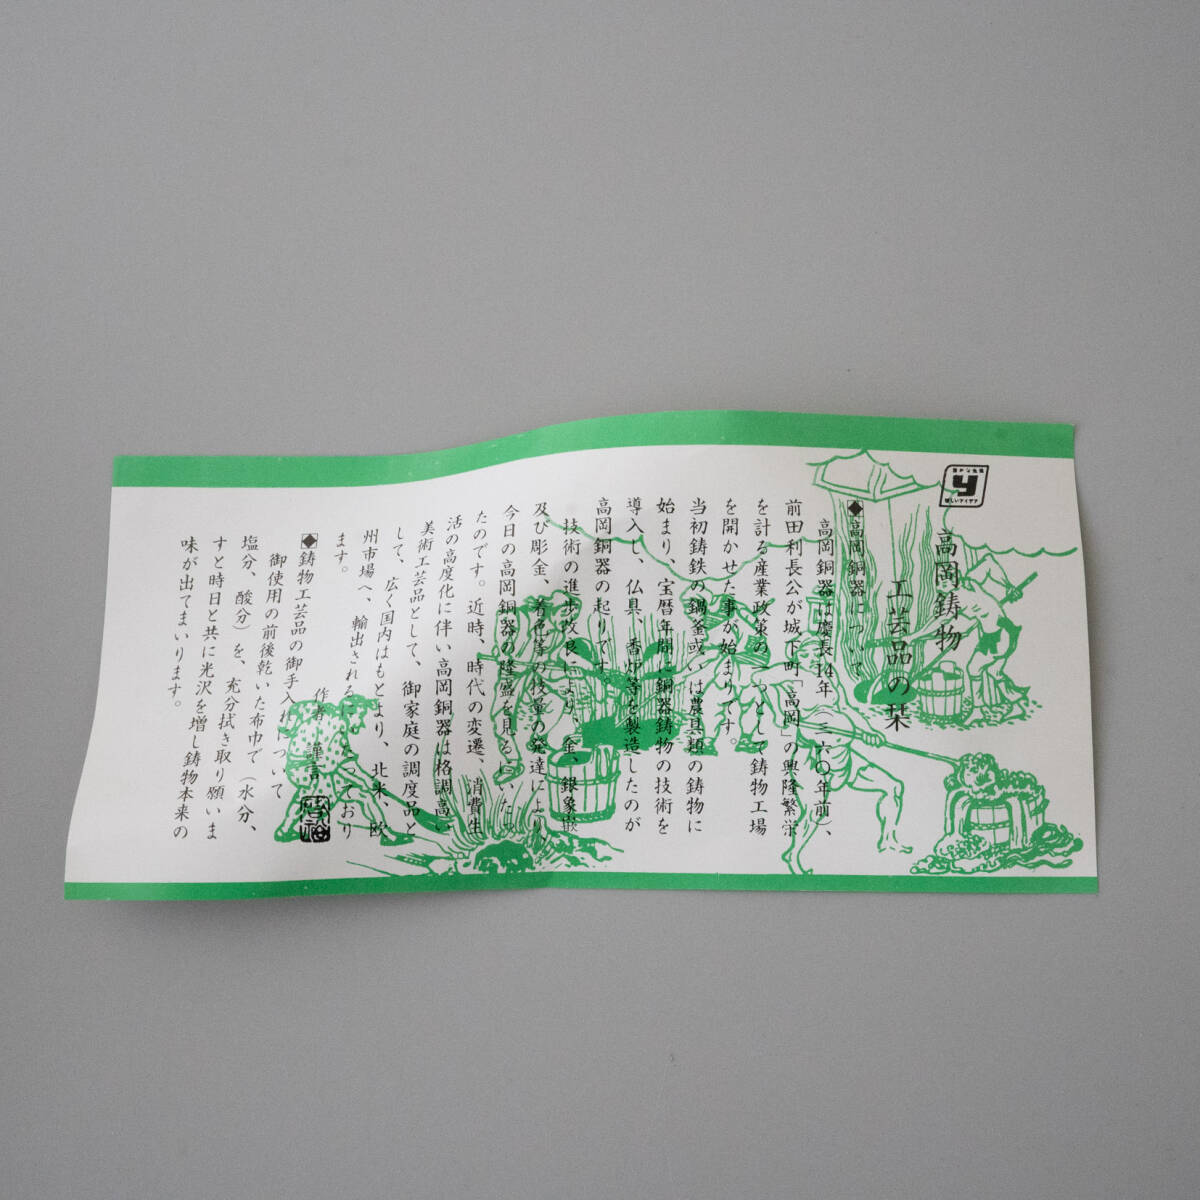 高岡鋳物
工芸品の栞
◆高岡銅器について
高岡銅器は慶長14年(三六〇年前)、
前田利長公が城下町「高岡」の興隆繁栄
を計る産業政策の一つとして鋳物工場
を開かせた事が始まりです。
当初鋳鉄の鍋釜或いは農具類の鋳物に
始まり、宝暦年間に銅器鋳物の技術を
導入し、仏具、香炉等を製造したのが
高岡銅器の起りです。
技術の進歩改良により、金、銀象嵌
及び彫金、着色等の技筆の発達により
今日の高岡銅器の隆盛を見るにいたっ
たのです。近時、時代の変遷、消費生
活の高度化に伴い高岡銅器は格調高い
美術工芸品として、御家庭の調度品と
して、広く国内はもとより、北米、欧
州市場へ、輸出されるにいたっており
ます。
作者 謹言
◆鋳物工芸品の御手入れについて
御使用の前後乾いた布巾で(水分、
塩分、酸分)を、充分拭き取り願いま
すと時日と共に光沢を増し鋳物本来の
味が出てまいります。